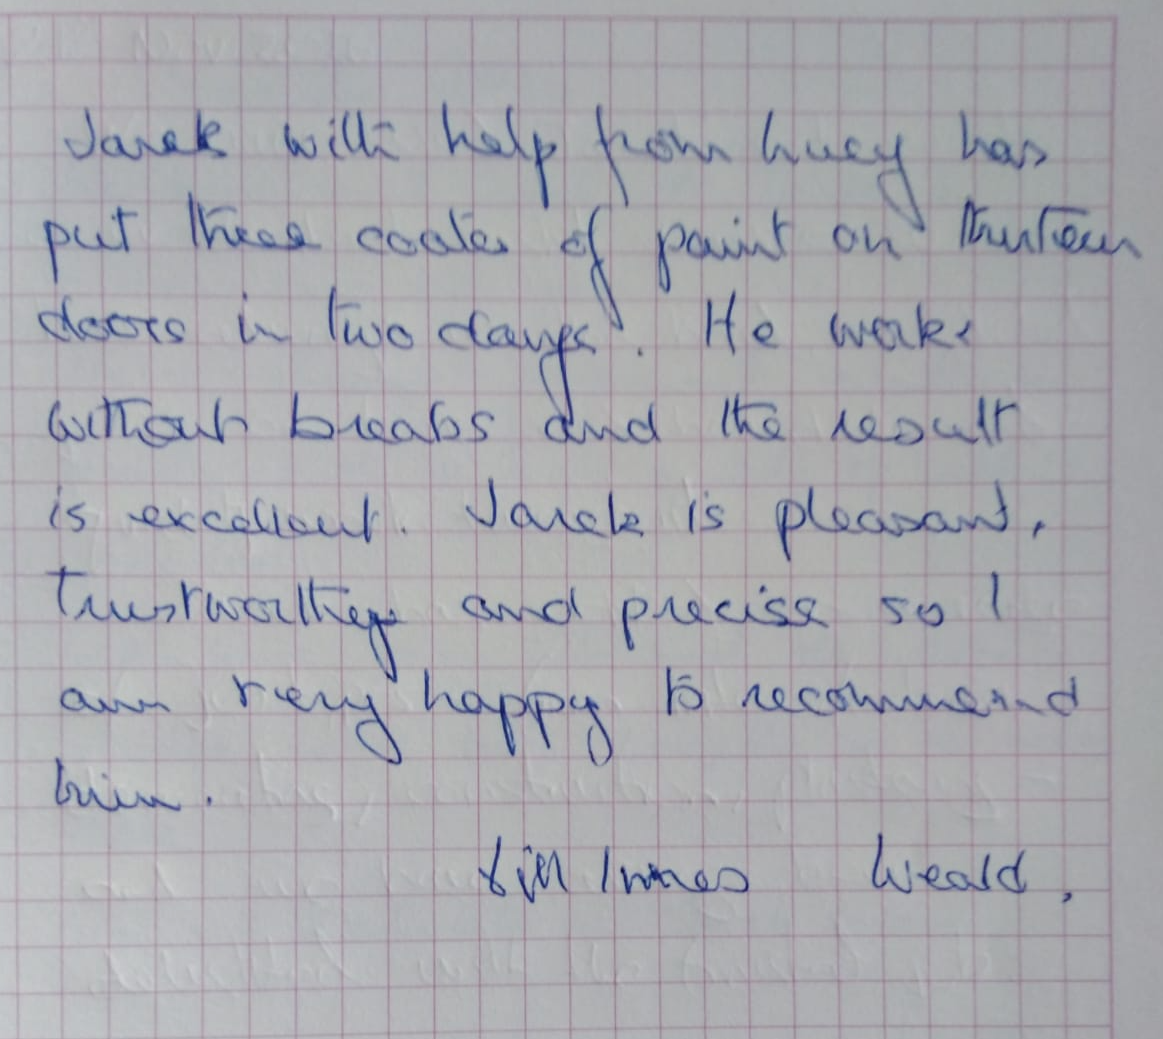 Jarek with help from Lucy has
put three coats of paint on thirteen
doors in two days. He works
without breaks and the result
is excellent. Jarek is pleasant,
trustworthy and precise so I
am very happy to recommend
him.
Jill Innes Weald,